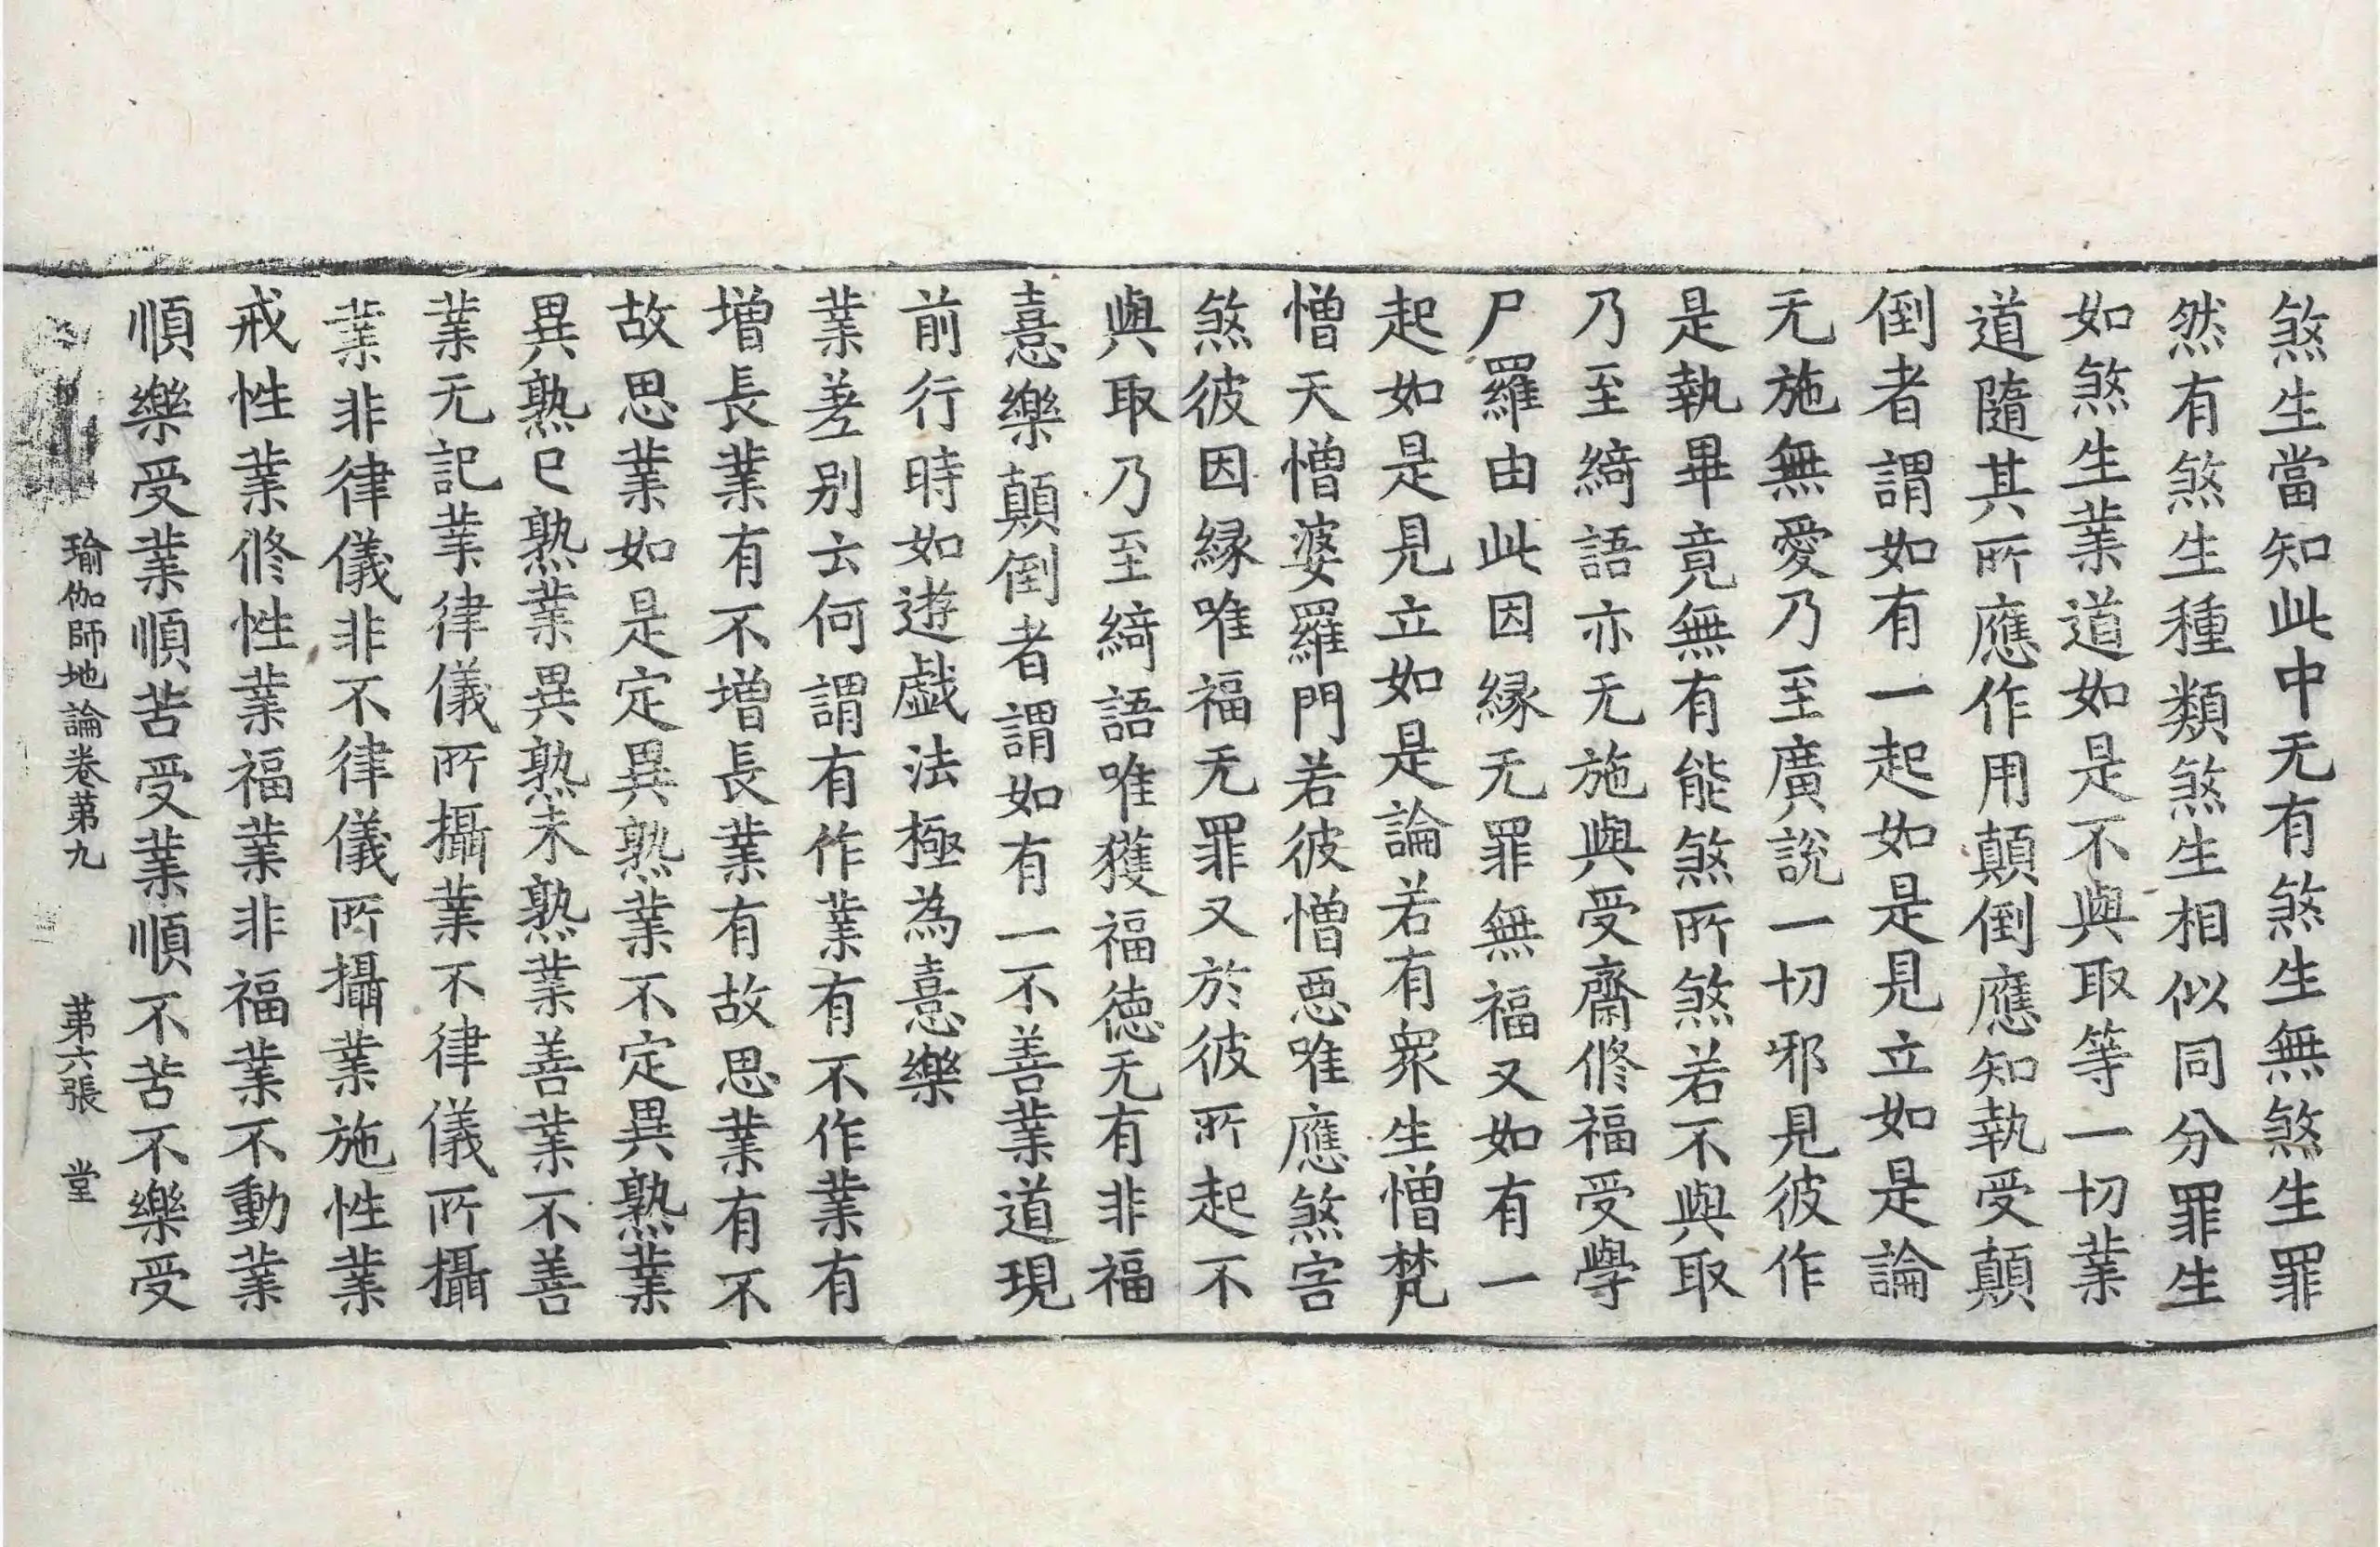 煞生當知此中无有煞生無煞生罪
然有煞生種類煞生相似同分罪生
如煞生業道如是不與取等一切業
道隨其所應作用顛倒應知執受顛
倒者謂如有一起如是見立如是論
无施無愛乃至廣說一切邪見彼作
是執畢竟無有能煞所煞若不與取
乃至綺語亦无施與受齋修福受學
尸羅由此因緣无罪無福又如有一
起如是見立如是論若有衆生憎梵
憎天憎婆羅門若彼憎惡唯應煞害
煞彼因緣唯福无罪又於彼所起不
與取乃至綺語唯獲福德无有非福
憙樂顛倒者謂如有一不善業道現
前行時如遊戲法極為憙樂
業差別云何謂有作業有不作業有
增長業有不增長業有故思業有不
故思業如是定異熟業不定異熟業
異熟已熟業異熟未熟業善業不善
業无記業律儀所攝業不律儀所攝
業非律儀非不律儀所攝業施性業
戒性業修性業福業非福業不動業
順樂受業順苦受業順不苦不樂受
瑜伽師地論卷第九 第六張 堂